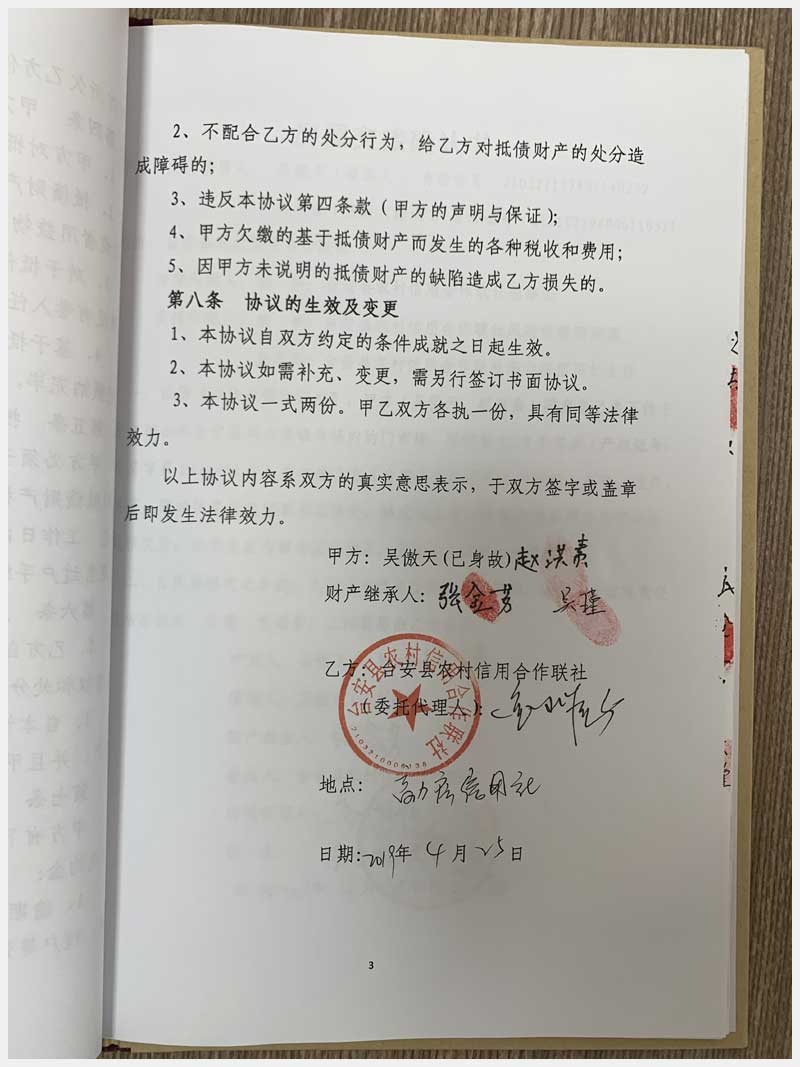 2、不配合乙方的处分行为，给乙方对抵债财产的处分造
成障碍的；
3、违反本协议第四条款（甲方的声明与保证）；
4、甲方欠缴的基于抵债财产而发生的各种税收和费用；
5、因甲方未说明的抵债财产的缺陷造成乙方损失的。
第八条 协议的生效及变更
1、本协议自双方约定的条件成就之日起生效。
2、本协议如需补充、变更，需另行签订书面协议。
3、本协议一式两份。甲乙双方各执一份，具有同等法律
效力。
以上协议内容系双方的真实意思表示，于双方签字或盖章
后即发生法律效力。
甲方：吴傲天(已身故)赵洪
财产继承人：张金芳 吴瑾
乙方：台安县农村信用合作联社
（委托代理人）：
台安县农村信用合作联社
地点： 高力房信用社
日期：2019年 4 月 25 日
3